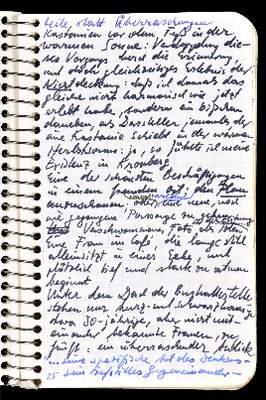 Seite, statt Überraschungen
Kastanien vor dem Fuß in der
warmen Sonne: Verdoppelung die-
ses Vorgangs durch die Erinnerung,
und doch gleichzeitiges Erlebnis der
: daß ich damals das
gleiche nicht harmonisch wie jetzt
erlebt habe, sondern ein bißchen
daneben, als Darsteller jemandes, der
eine Kastanie schiebt in der warmen
Herbstsonne: ja, so jubelt ist meine
Existenz in Kronberg
Eine der schönsten Beschäftigungen
in einem fremden Ort: den Plan
anzuschauen; oder eine neue, noch
nie gegangene Passage zu
Verschwommene Foto als
Eine Frau im Café, die lange still
allein sitzt in einer Ecke, und
plötzlich tief und stark zu atmen
beginnt
Unter dem Dach der Bushaltestelle
stehen nur kurz- und schwarzhaarige
etwa 30-jährige, aber nicht mit-
einander bekannte Frauen,
: ein überraschender Anblick
eine spezifische Art des Denkens
es sein Gegeneinander